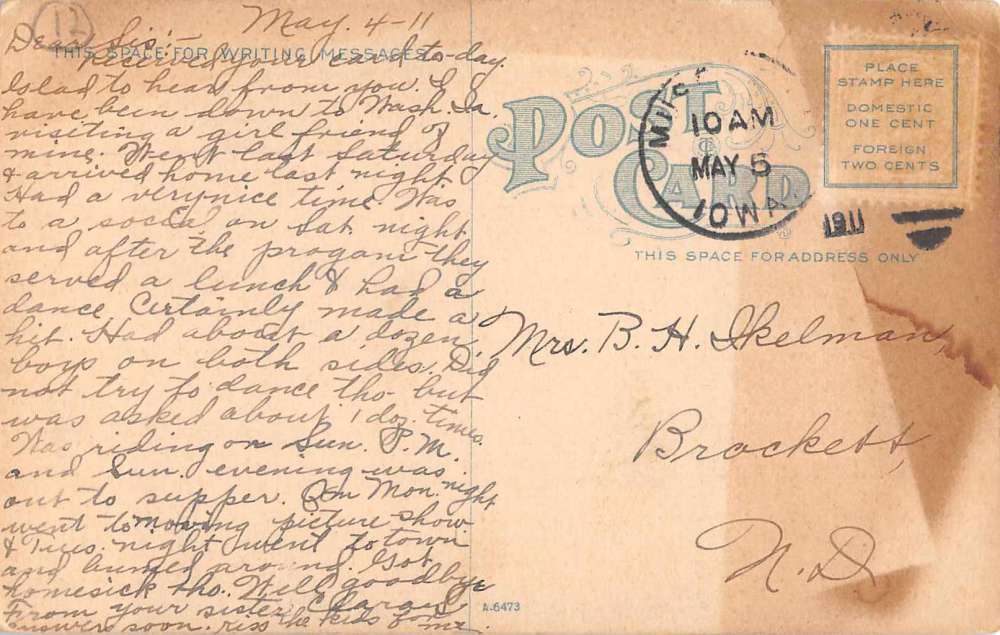 12
May. 4-11
Dear Sis:-
THIS SPACE FOR WRITING MESSAGES
Received your card to-day.
Glad to hear from you. I
have been down to Wash. Ia.
visiting a girl friend of
mine. Went last Saturday
& arrived home last night
Had a very nice time. Was
to a social on Sat. night
and after the progam they
served a lunch & had a
dance. Certainly made a
hit. Had about a dozen
boys on both sides. Did
not try to dance tho- but
was asked about 1 doz. times.
Was riding on Sun. P.M.
and Sun. evening was
out to supper. On Mon. night
went to moving picture show
& Tues. night went to town
and bumed around. Got
homesick tho. Well goodbye
From your sister
answer soon. kiss the kids for me.
POST
CARD
THIS SPACE FOR ADDRESS ONLY
PLACE
STAMP HERE
DOMESTIC
ONE CENT
FOREIGN
TWO CENTS
10 AM
MAY 5
IOWA
1911
Mrs. B. H. Ikelman,
Brockett,
N. D
A-6473